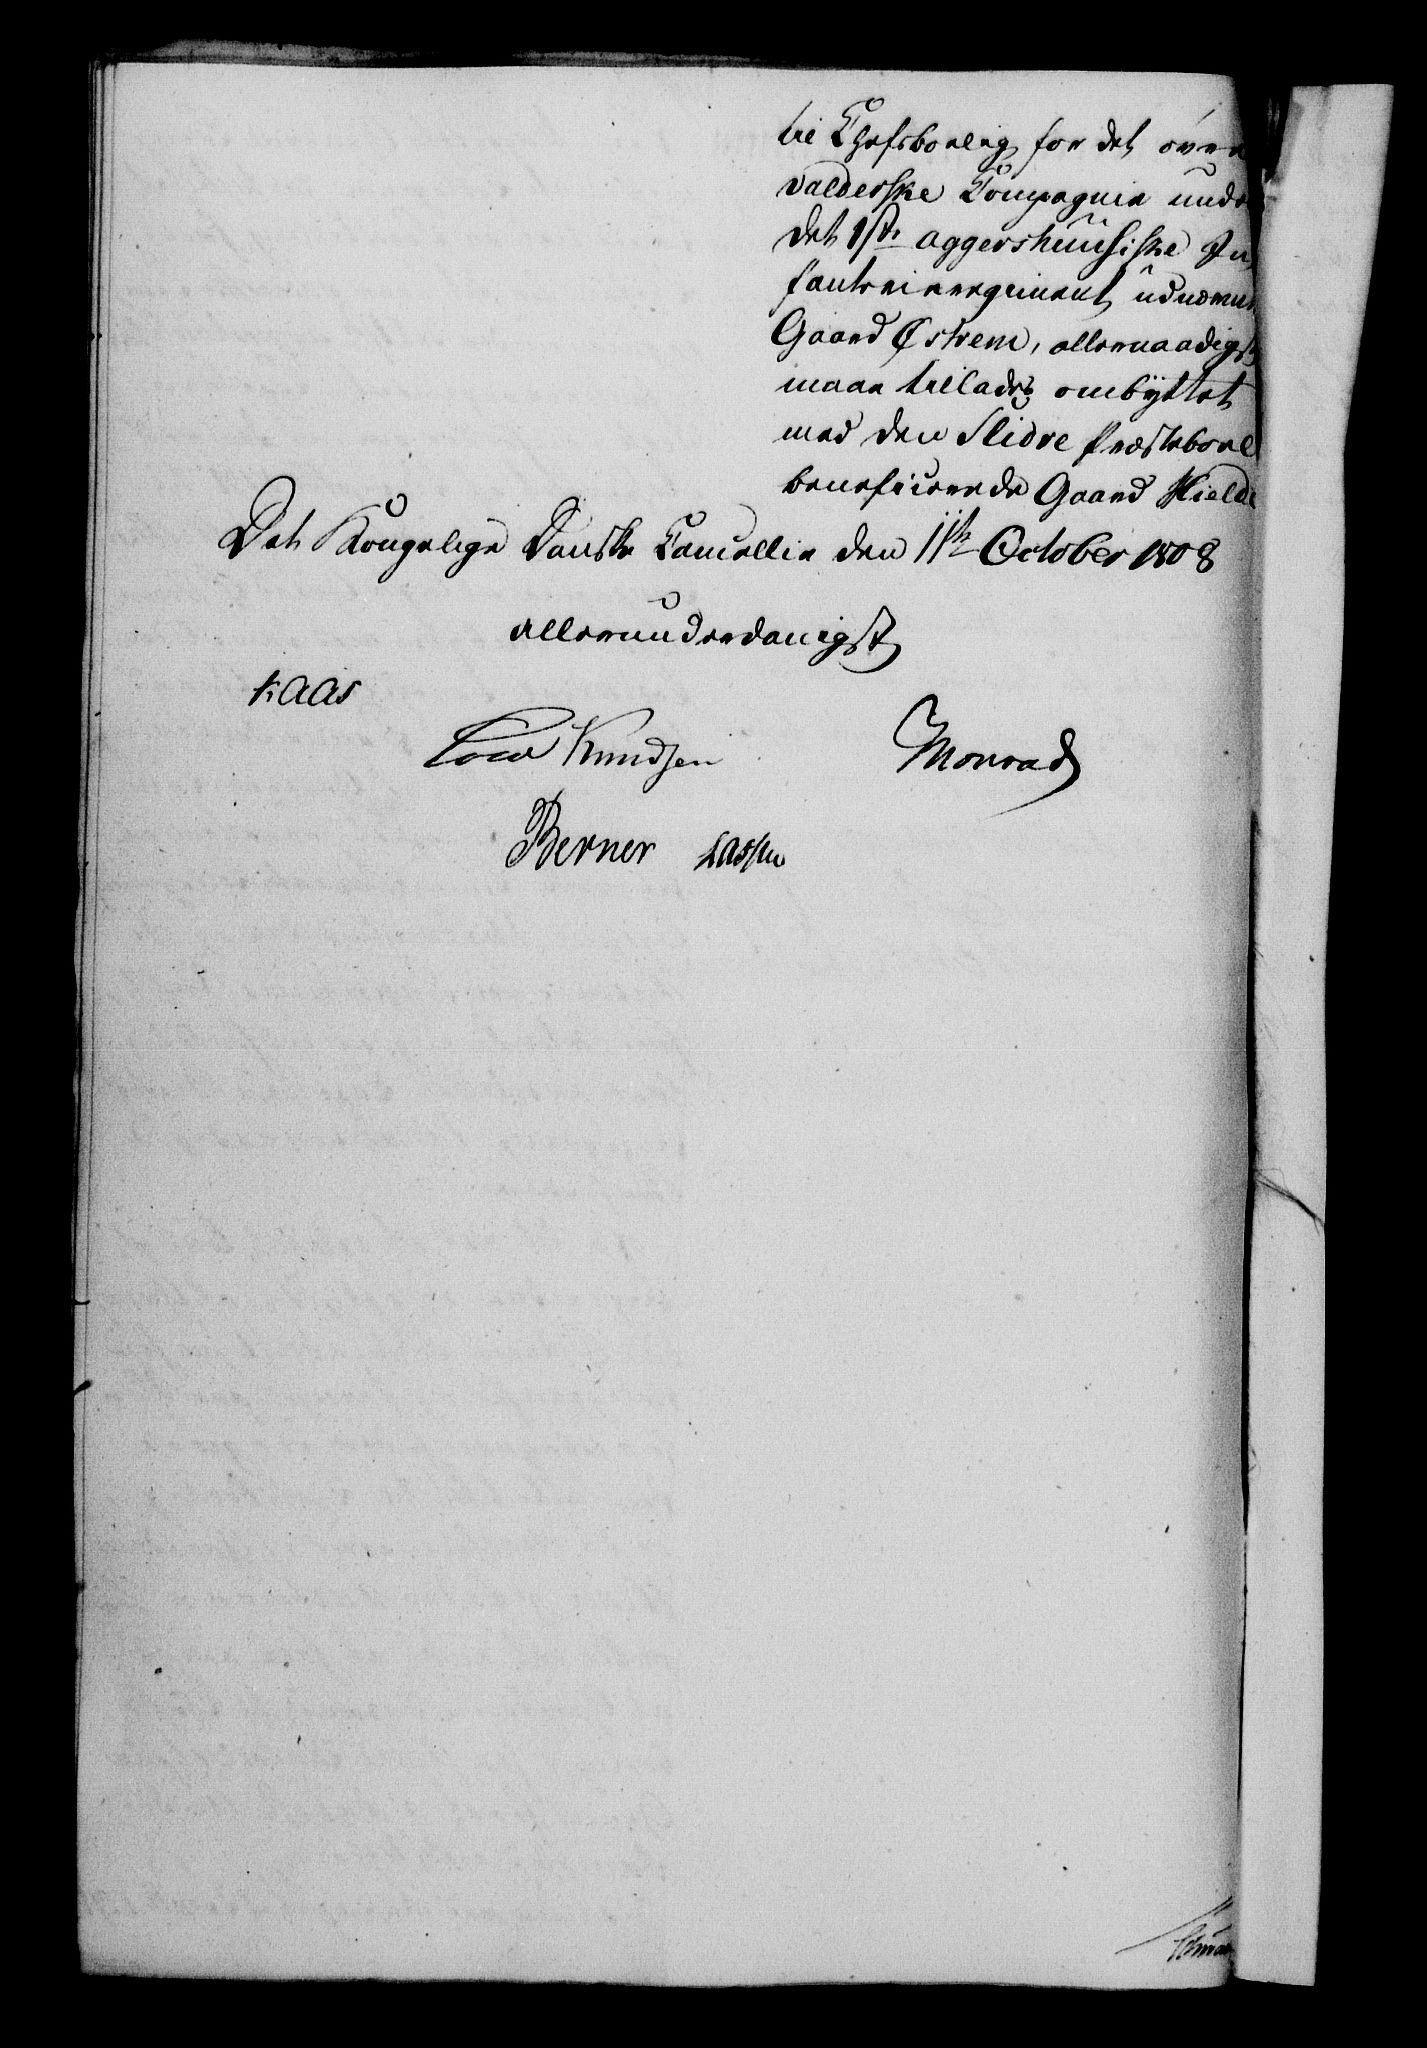 til Chefsboelig for det øvre
Valderske Compagnie unde
det 1ste aggershuusiske In
fanterieregiment udnævnt
Gaard Østrem, allernaadigst
maae tillades ombyttet
med den Slidre Præsteboel
beneficerede Gaard Hielde
Det Kongelige Danske Cancellie den 11te October 1808
allerunderdanigst
Kaas
Cold Knudsen Monrad
Berner Lassen